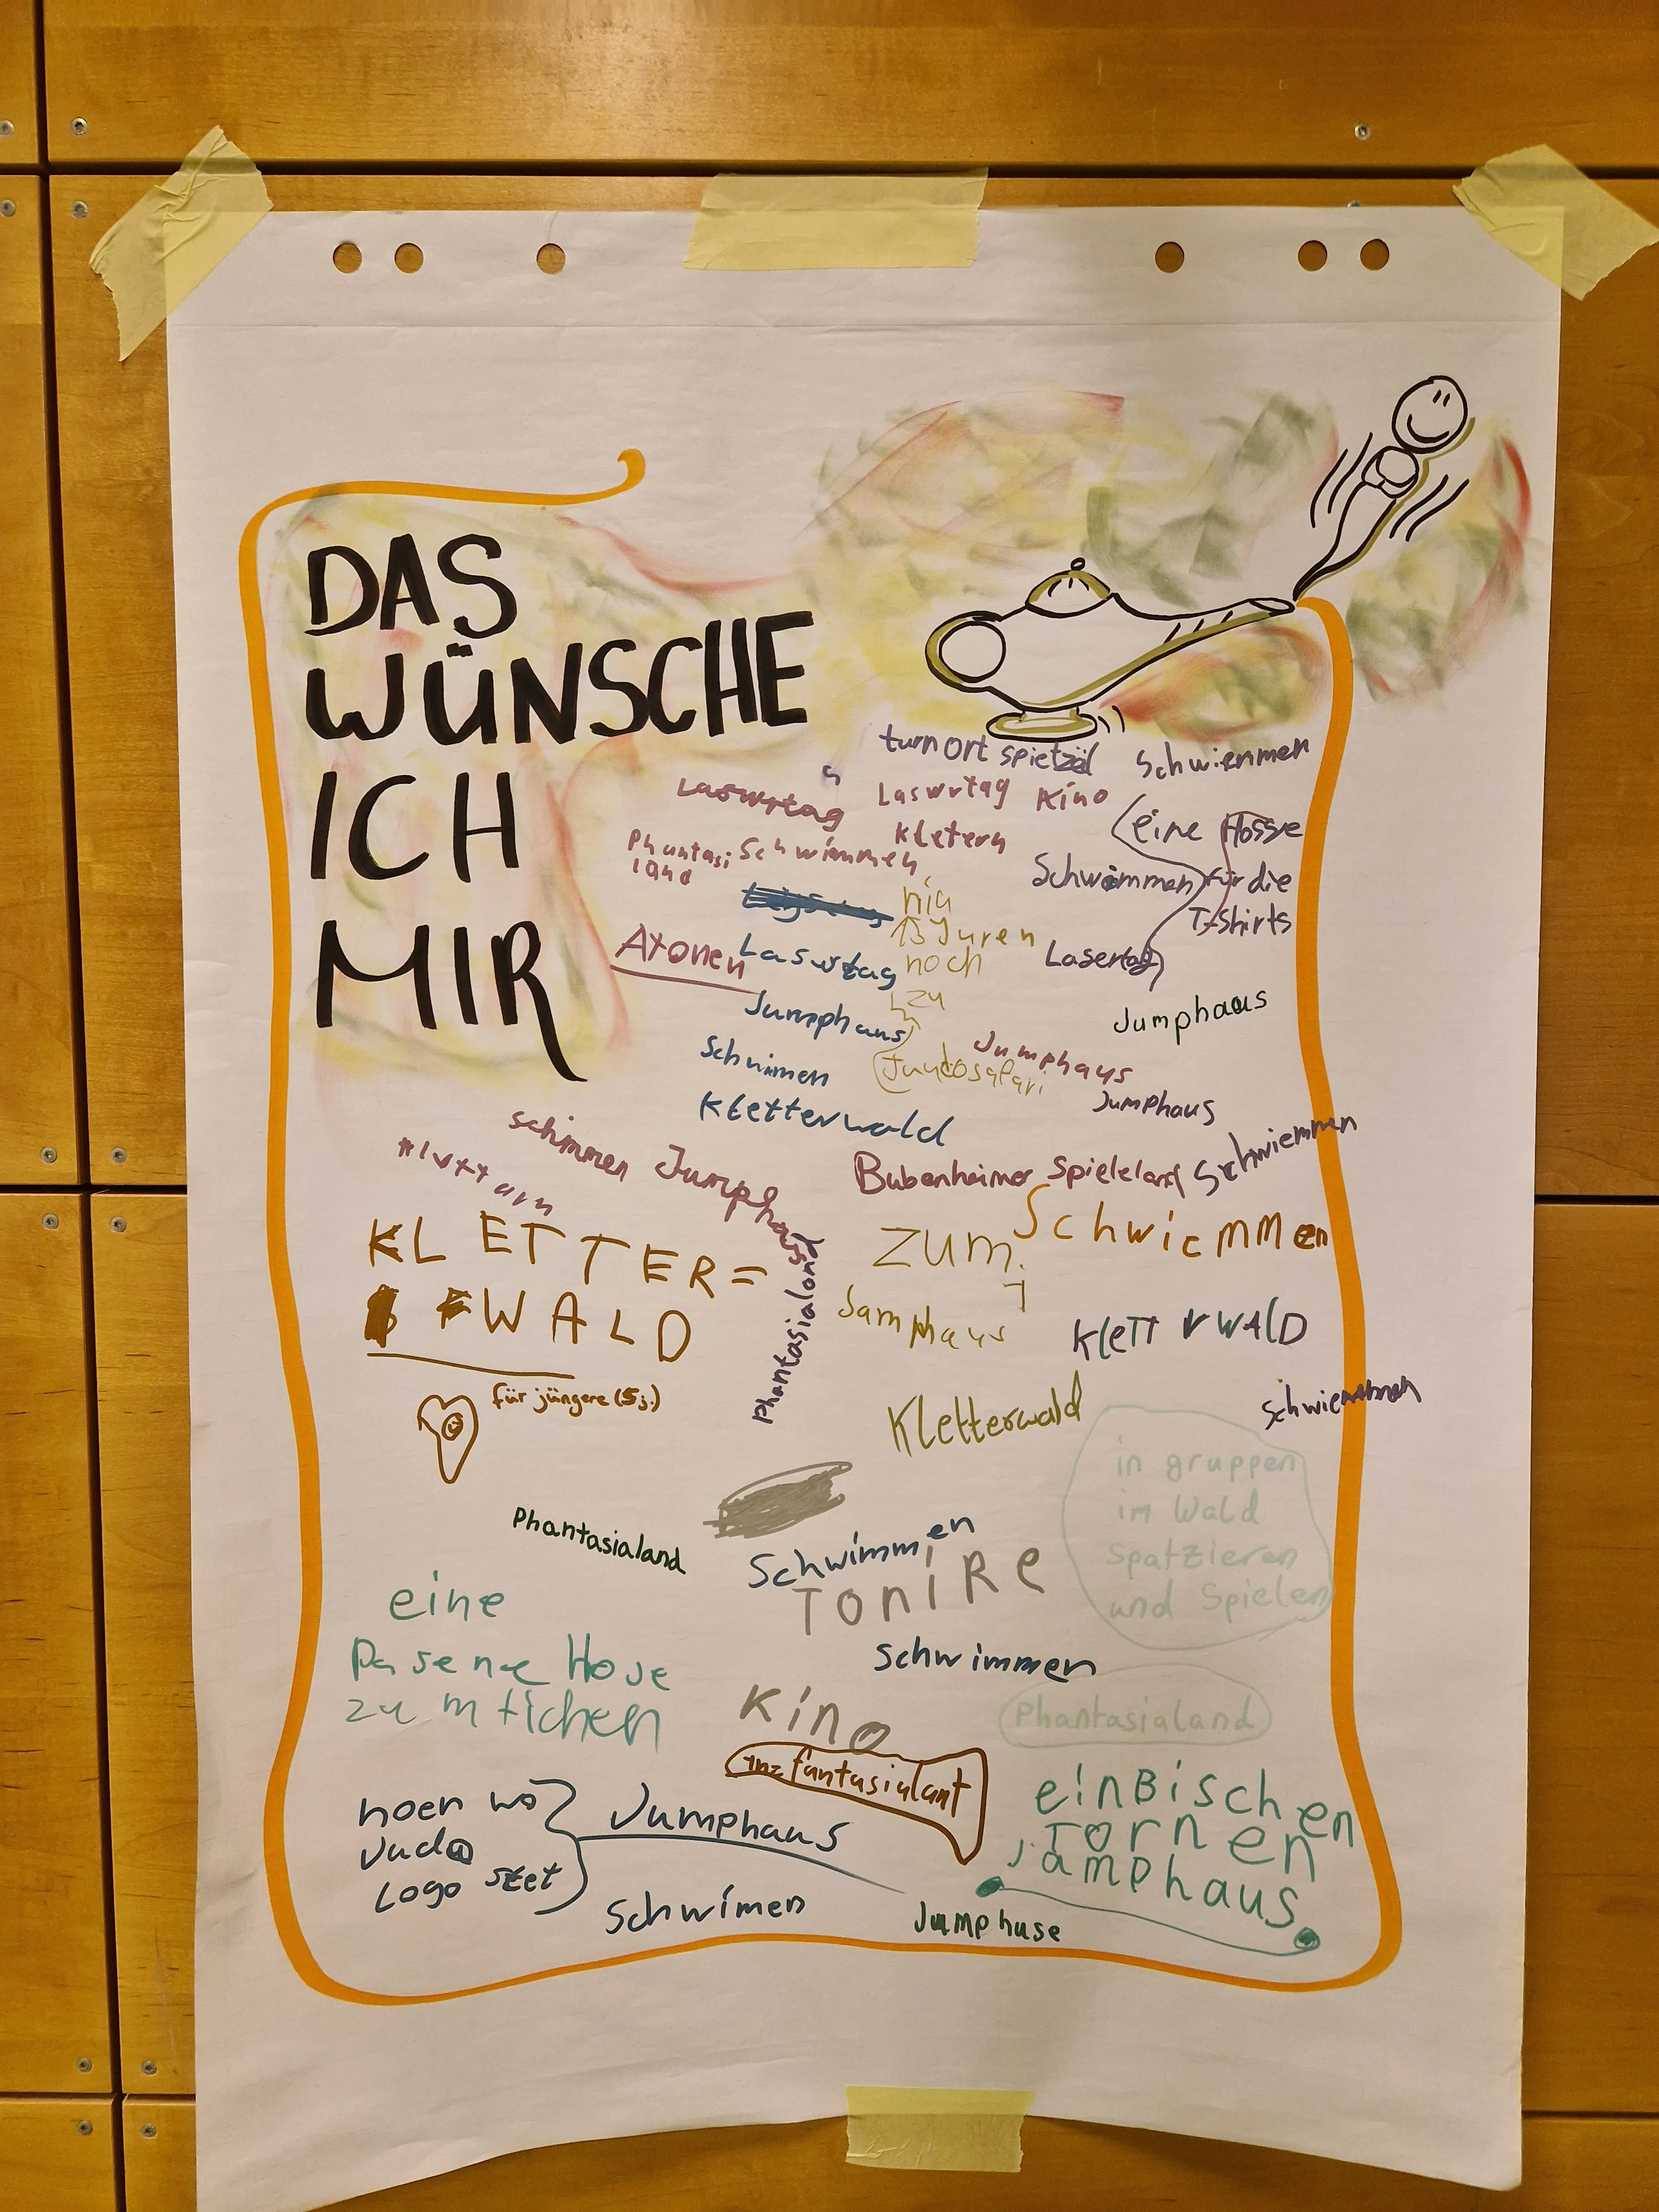 DAS
WÜNSCHE
ICH
MIR
turnort spietzäl
Schwienmen
Laswrtag
Laswrtag Kino
Kletern
(eine Hosse
für die
T-Shirts
Phantasi
land
Schwimmen
Schwimmen
niu
13 Juren
noch
zu
Judosafari
Atonen
Laswtag
Lasertag
Jumphaus
Jumphaus
Jumphaus
Jumphaus
Schwimen
Kletterwald
Schimmen
Jumphaus
Bubenheimer Spieleland
Schwiemmen
KLETTER=
WALD
für jüngere (5j.)
Phantasialand
zum
Jamphaus
Schwiemmen
KleTTrWAlD
Kletterwald
Schwiemmen
in gruppen
im Wald
Spatzieren
und Spielen
Phantasialand
Schwimmen
ToniRe
eine
Pasene Hose
zum tichen
schwimmen
Kino
Phantasialand
inz fantasialant
noen wo
Judo
Logo stet
Jumphaus
Schwimen
einBischen
Tornen
Jamphaus
Jumphuse